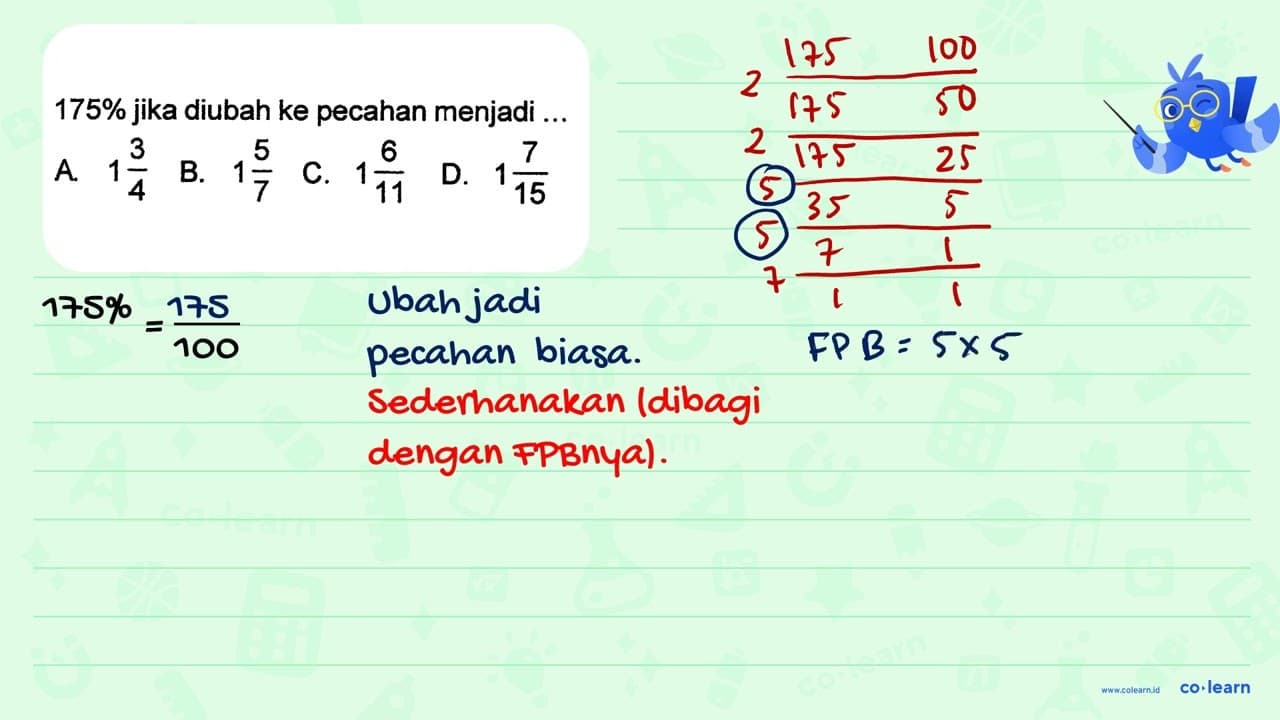 175% jika diubah ke pecahan menjadi ...
A. 1 3/4 B. 1 5/7 C. 1 6/11 D. 1 7/15
175% = 175/100
Ubah jadi
pecahan biasa.
Sederhanakan (dibagi
dengan FPBnya).
175 100
2 175 50
2 175 25
5 35 5
5 7 1
7 1 1
FPB = 5 x 5
co•learn
co•learn
co•learn
www.colearn.id co•learn